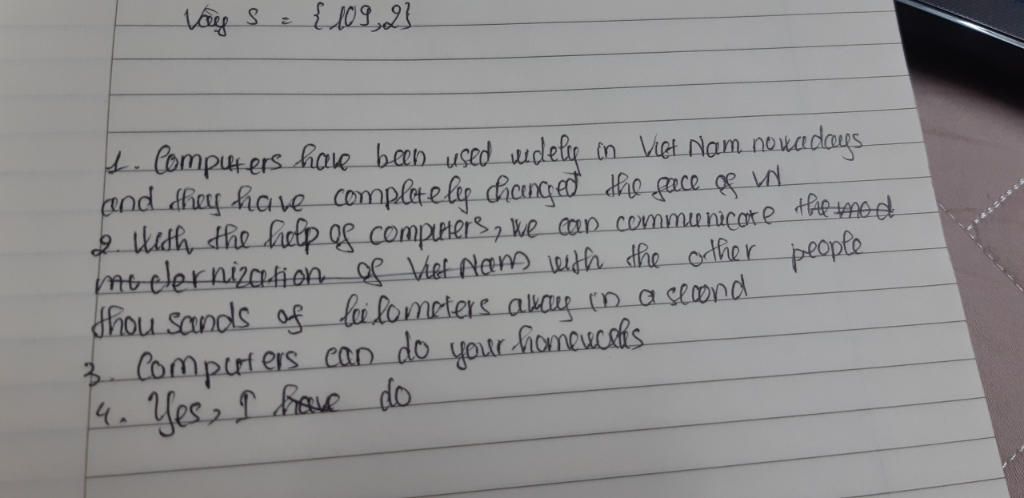 Vậy S = {109,2}
1. Computers have been used widely in Viet Nam nowadays
and they have completely changed the face of VN
2. With the help of computers, we can communicate the mod
modernization of Viet Nam with the other people
thousands of kilometers away in a second
3. Computers can do your homeworks
4. Yes, I have do